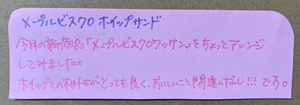 メープルビスクロ ホイップサンド
今月の新商品「メープルビスクロワッサン」をちょっとアレンジ
してみました。
ホイップとの相性がとっても良く、おいしいこと間違いなし!!!です。